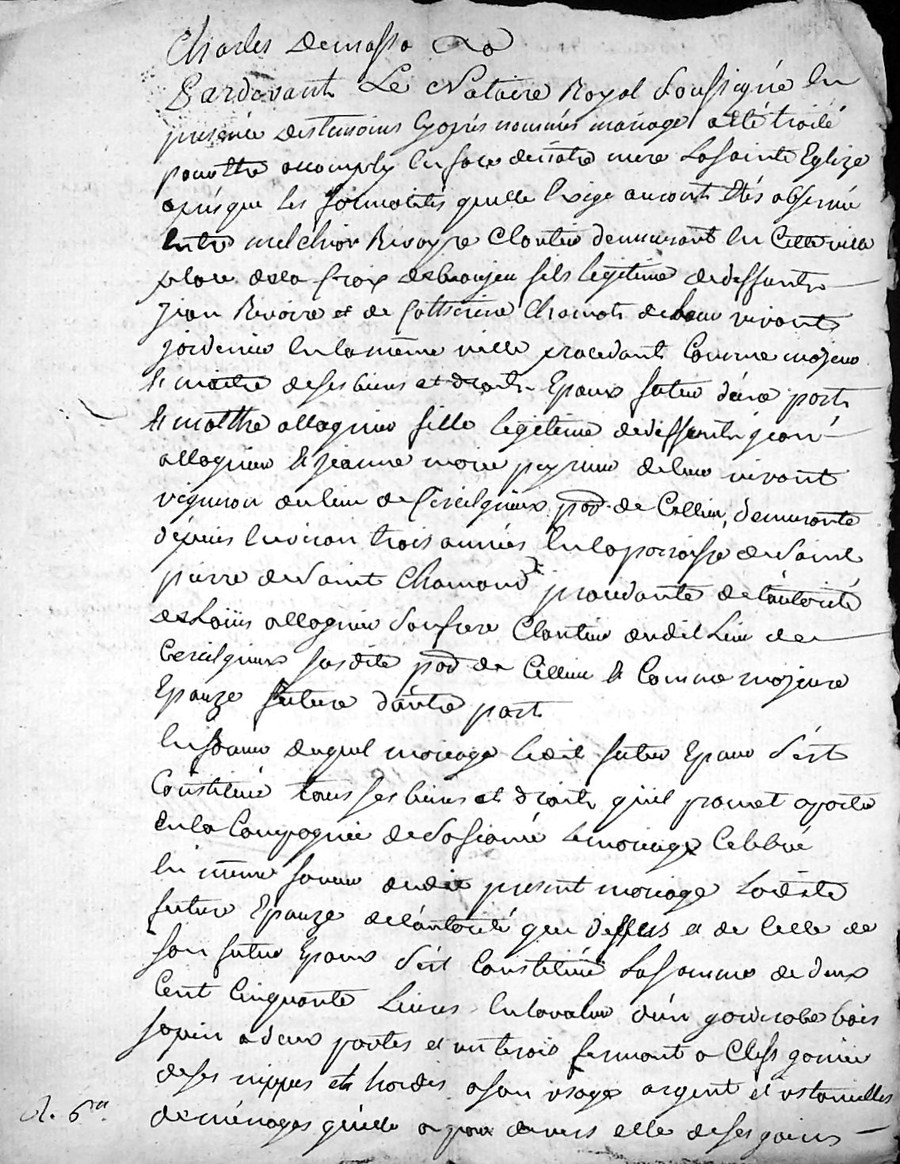 Charles Demasso
Pardevant Le Notaire Royal Soussigné En
presence des temoins Cy après nommés mariage a été traité
pour être accomply En face de nôtre mere La Sainte Eglize
après que les formalités quelle Exige auront Etés observé
Entre melchior Revoyre Cloutier demeurant En Cette ville
place de la Croix de beaujeu fils légitime de deffunts
Jean Revoire et de Catherine Chamot de leur vivant
jardenier En la même ville procedant Comme majeur
& maitre de ses biens et droits Epoux futur d'une part
& marthe allaguier fille legitime de deffunts jean
allaguier & jeanne marie peyrieu de leur vivant
vigneron du lieu de pard de Cellieu, demeurante
depuis Environ trois années En la paroisse de Saint
pierre de Saint Chamond procedante de l'autorité
de Loüis allaguier Son frere Cloutier dudit Lieu de
susdite pard de Cellieu & Comme majeure
Epouze future d'autre part
En faveur duquel mariage Ledit futur Epoux S'est
Constitué tous ses biens et droits qu'il promet aporter
En la Compagnie de Sa fiancée Le mariage Celebré
En même faveur dudit present mariage Ladite
future Epouze de l'autorité que dessus et de Celle de
Son futur Epoux S'est Constituée La Somme de deux
Cent Cinquante Livres En la valeur d'un garderobe bois
Sapin a deux portes et un tiroir fermant a Clefs garnie
de ses nippes et hardes a son usage argent et ustancilles
de ménages qu'elle a par devers elle de ses gains
R. 6